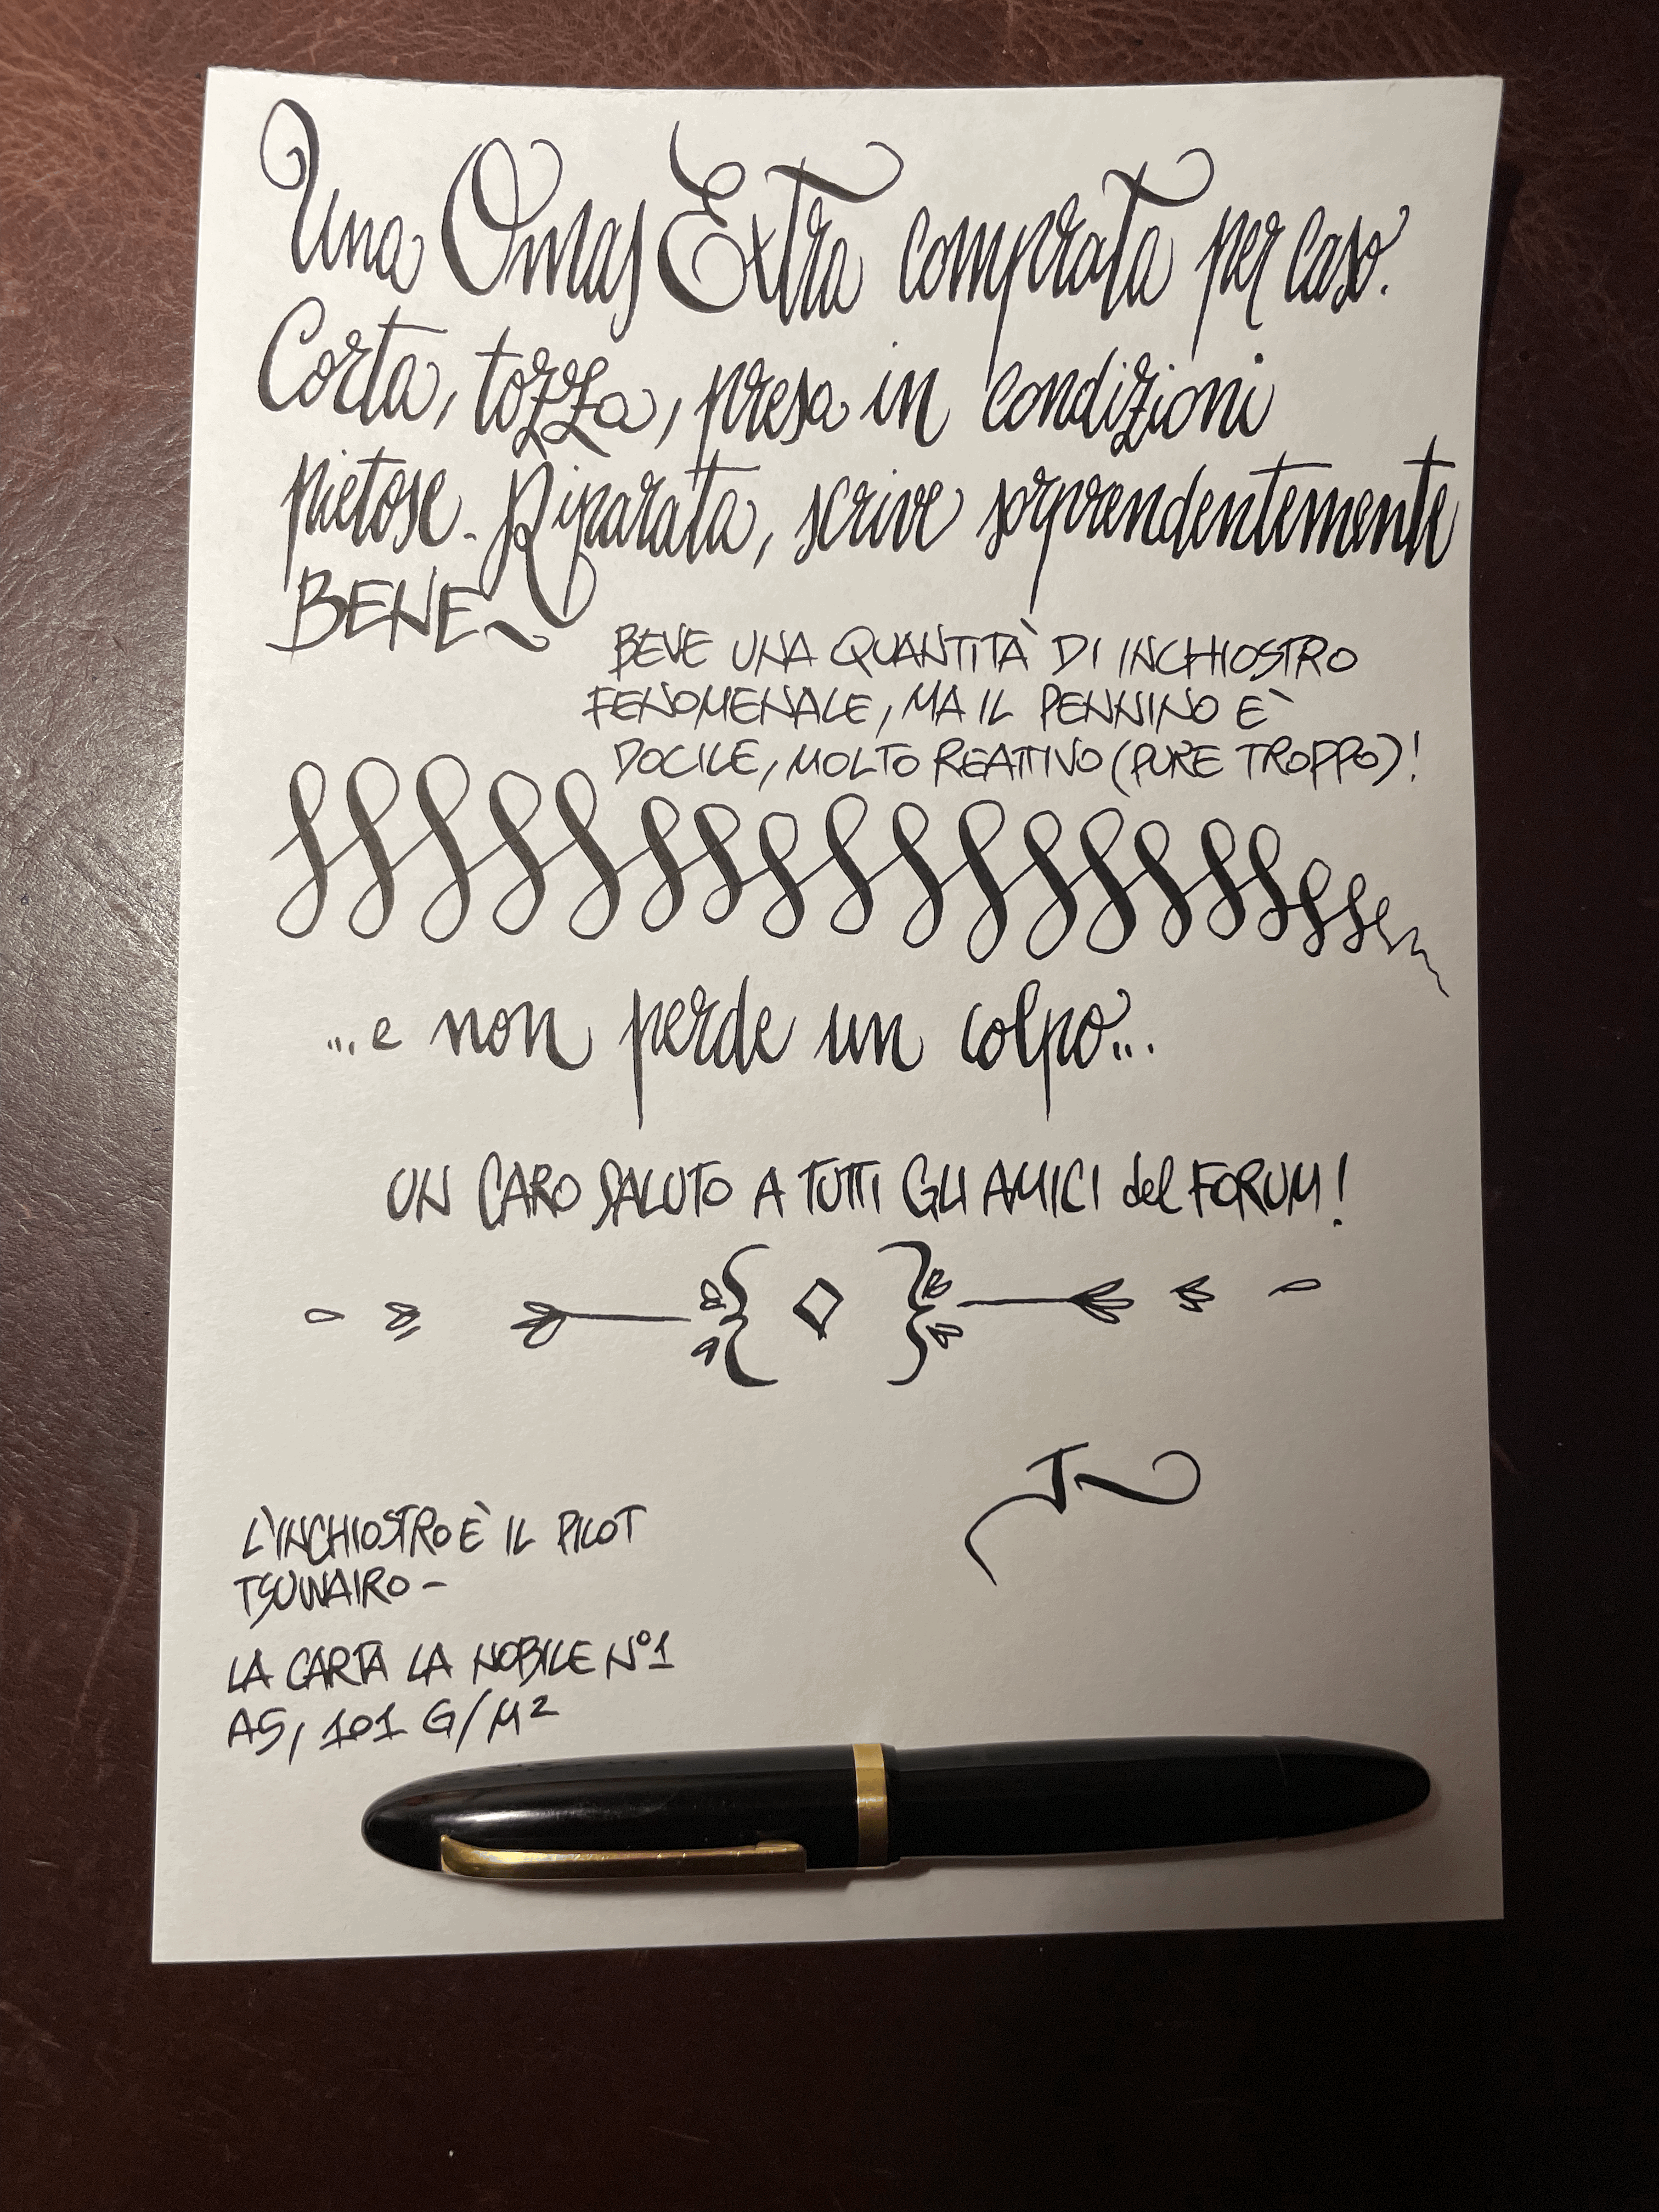 Una Omas Extra comprata per caso.
Corta, tozza, presa in condizioni
pietose. Riparata, scrive sorprendentemente
BENE
BEVE UNA QUANTITÀ DI INCHIOSTRO
FENOMENALE, MA IL PENNINO È
DOCILE, MOLTO REATTIVO (PURE TROPPO)!
...e non perde un colpo...
UN CARO SALUTO A TUTTI GLI AMICI del FORUM!
L'INCHIOSTRO È IL PILOT
TSUWAIRO -
LA CARTA LA NOBILE N°1
A5, 101 G/M²